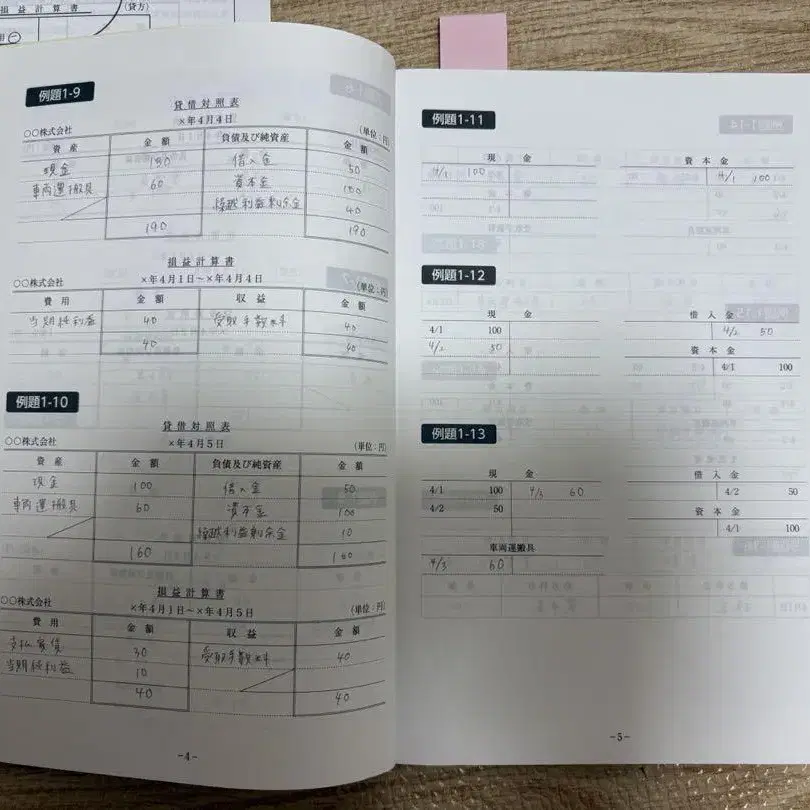 損益計算書
(貸方)
例題1-9
貸借対照表
×年4月4日
○○株式会社 (単位:円)
資産 金額 負債及び純資産 金額
現金 130 借入金 50
車両運搬具 60 資本金 100
繰越利益剰余金 40
190 190
損益計算書
×年4月1日~×年4月4日
○○株式会社 (単位:円)
費用 金額 収益 金額
当期純利益 40 受取手数料 40
40 40
例題1-10
貸借対照表
×年4月5日
○○株式会社 (単位:円)
資産 金額 負債及び純資産 金額
現金 100 借入金 50
車両運搬具 60 資本金 100
繰越利益剰余金 10
160 160
損益計算書
×年4月1日~×年4月5日
○○株式会社 (単位:円)
費用 金額 収益 金額
支払家賃 30 受取手数料 40
当期純利益 10
40 40
-4-
例題1-11
現金 資本金
4/1 100 4/1 100
例題1-12
現金 借入金
4/1 100 4/2 50
4/2 50 資本金
4/1 100
例題1-13
現金 借入金
4/1 100 4/3 60 4/2 50
4/2 50 資本金
4/1 100
車両運搬具
4/3 60
-5-